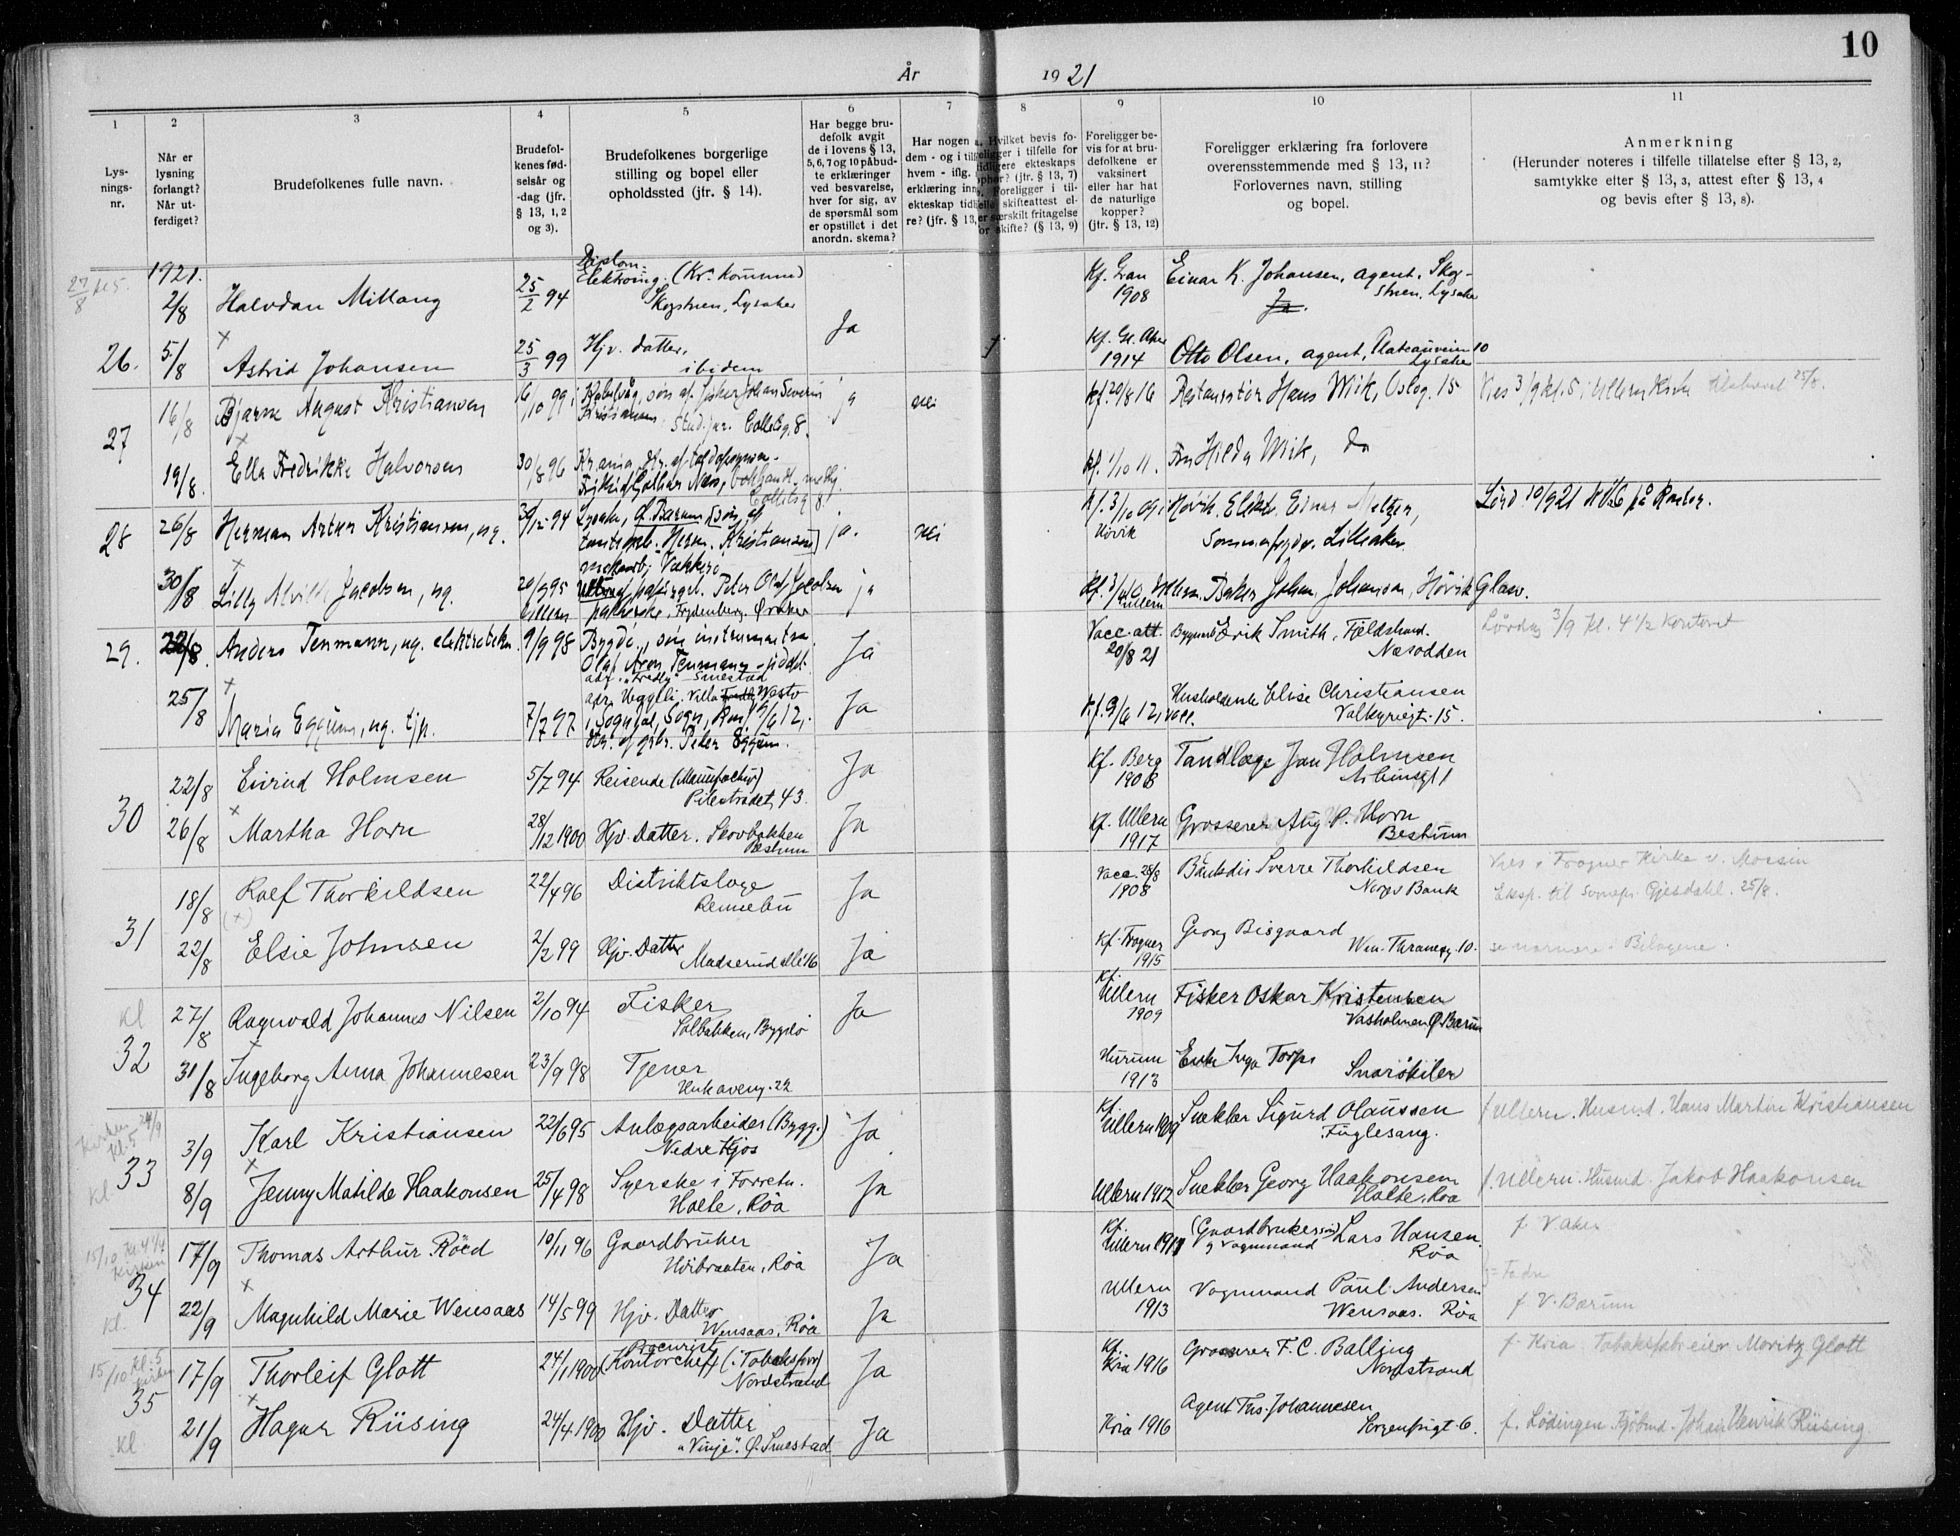 10
År 1921
1 2 3 4 5 6 7 8 9 10 11
Lys-
nings-
nr.
Når er
lysning
forlangt?
Når ut-
ferdiget?
Brudefolkenes fulle navn.
Brudefol-
kenes fød-
selsår og
-dag (jfr.
§ 13, 1, 2
og 3).
Brudefolkenes borgerlige
stilling og bopel eller
opholdssted (jfr. § 14).
Har begge bru-
defolk avgit
de i lovens § 13,
5, 6, 7 og 10 påbud-
te erklæringer
ved besvarelse,
hver for sig, av
de spørsmål som
er opstillet i det
anordn. skema?
Har nogen a
dem - og i til
hvem - iflg.
erklæring inn
ekteskap tid
re? (jfr. § 13,
Hvilket bevis fo-
religger i tilfelle for
tidligere ekteskaps
ophør? (jfr. § 13, 7)
Foreligger i til-
felle skifteattest el-
er særskilt fritagelse
for skifte? (§ 13, 9)
Foreligger be-
vis for at bru-
defolkene er
vaksinert
eller har hat
de naturlige
kopper?
(jfr. § 13, 12)
Foreligger erklæring fra forlovere
overensstemmende med § 13, 11?
Forlovernes navn, stilling
og bopel.
Anmerkning
(Herunder noteres i tilfelle tillatelse efter § 13, 2,
samtykke efter § 13, 3, attest efter § 13, 4
og bevis efter § 13, 8).
27/8 kl 5. 1921. 2/8 Halvdan Millang 25/2 94 Diplom. Elektroing. (Kr. Kommune) Skogstuen, Lysaker Kf. Gran 1908 Einar K. Johansen, agent, Skog-
stuen, Lysaker
Ja.
26. 5/8 Astrid Johansen 25/3 99 Hjv. datter, ibidem Ja Kf. 1914 Otto Olsen, agent, Plateauveien 10 Lysaker
27 16/8 Bjarne August Kristiansen 16/10 99 søn af fisker Johan Severin
Kristiansen Stud. jur. Colletsg. 8. ja nei Kf. 20/8 16 Restauratør Hans Wiik, Oslog. 15 Vies 3/9 kl. 5 i Ullern Kirke 25/8.
19/8. Ella Fredrikke Halvorsen 30/8 96 Kr.ania, dtr. af
Næs, Colletsg 8. Kf. 1/10 11. Fru Hilda Wiik, do
28 26/8 Herman Artur Kristiansen, ug. 30/12 94 Lysaker, V. Bærum, søn af
Herm. Kristiansen ja. nei Kf. 3/10 09 i Høvik Høvik. Elektr. Einar Metzer,
Sommerfrydv. Lilleaker. Lørd 10/9 21 kl 6 på Kontor.
30/8 Lilly Alvilde Jacobsen, ug. 20/9 95 Ullern Peter Olaf Jacobsen
pakkerske, Frydenberg, Øraker ja Kf. 3/4 10 Ullern Baker Johan Johansen, Høvik Glasv.
29. 22/8. Anders Tenmann, ug. elektrotekn. 9/9 98 Bygdø, søn instrumentm.
Olaf Aron Tenmann
adr. "Fredly" Smestad Ja Vacc. att. 20/8 21 Erik Smith, Fjeldstrand.
Næsodden Lørdag 3/9 kl. 4 1/2 Kontoret
25/8 Maria Eggum, ug. tjp. 7/7 97 adr. Heggeli, Villa Westo
i Sogndal, Sogn,
dtr. af grbr. Peter Eggum. Ja Kf. 9/6 12, vacc. Husholderske Elise Christiansen
Valkyriegt. 15.
30 22/8 Eivind Holmsen 5/7 94 Reisende (Manufactur)
Pilestrædet, 43. Ja Kf. Berg 1908 Tandlæge Jan Holmsen
26/8 Martha Horn 28/12 1900 Hjv. Datter. Skovbakken
Bestum Ja Kf. Ullern 1917 Grosserer Aug. P. Horn
Bestum
31 18/8 Rolf Thorkildsen 22/4 96 Distriktslæge
Rennebu Ja Vacc. 28/8 1908 Bankdir Sverre Thorkildsen
Norges Bank Vies i Frogner Kirke v. Mossin
Eksp. til Sognepr. Gjesdahl. 25/8.
22/8 Elsie Johnsen 2/2 99 Hjv. Datter
Madserud allé 16 Ja Kf. Frogner 1915 Georg Bisgaard
Wm. Thranesg. 10. se nærmere i Bilagene.
Kl 32 27/8 Ragnvald Johannes Nilsen 2/10 94 Fisker
Solbakken, Bygdø Ja Kf. Ullern 1909 Fisker Oskar Kristensen
Vasholmen Ø Bærum
31/8 Ingeborg Anna Johannesen 23/9 98 Tjener
Huk aveny. 22 Hurum 1913 Enke Inga Torps Snarøkilen
Kirken kl. 5 24/9 Kl 33 3/9 Karl Kristiansen 22/6 95 Anlægsarbeider (Bygg.)
Nedre Hjos Ja Kf. Ullern 1909 Snekker Sigurd Olaussen
Fuglesang. f. Ullern. Husmd. Hans Martin Kristiansen
8/9 Jenny Matilde Haakonsen 25/4 98 Syerske i Forretn.
Holte, Røa Ja Ullern 1912 Snekker Georg Haakonsen
Holte, Røa f. Ullern. Husmd. Jakob Haakonsen
15/10 kl 4 1/4 Kirken kl. 34 17/9 Thomas Arthur Röed 10/11 96 Gaardbruker
Høibraaten, Röa Ja Kf. Ullern 1911 (Gaardbruker
og Vognmand) Lars Hansen.
Röa f V. Aker
22/9 Magnhild Marie Wensaas 14/5 99 Hjv. Datter
Wensaas, Röa Ja Ullern 1913 Vognmand Paul Andersen
Wensaas. Röa f V. Bærum
15/10 kl. 5 Kirken Kl 35 17/9 Thorleif Glott 24/1 1900 Procurist
(Kontorchef) (Tobaksforr)
Nordstrand Ja Kf. Kria 1916 Grosserer F. C. Balling
Nordstrand f. Kria. Tobaksfabreier Moritz Glott
21/9 Hagar Riising 24/4. 1900 Hjv. Datter
"Vinje". Ø. Smestad Ja Kria 1916 Agent Ths. Johannesen
Sorgenfrigt 6. f. Lödingen. Kjöbmd. Johan Henrik Riising